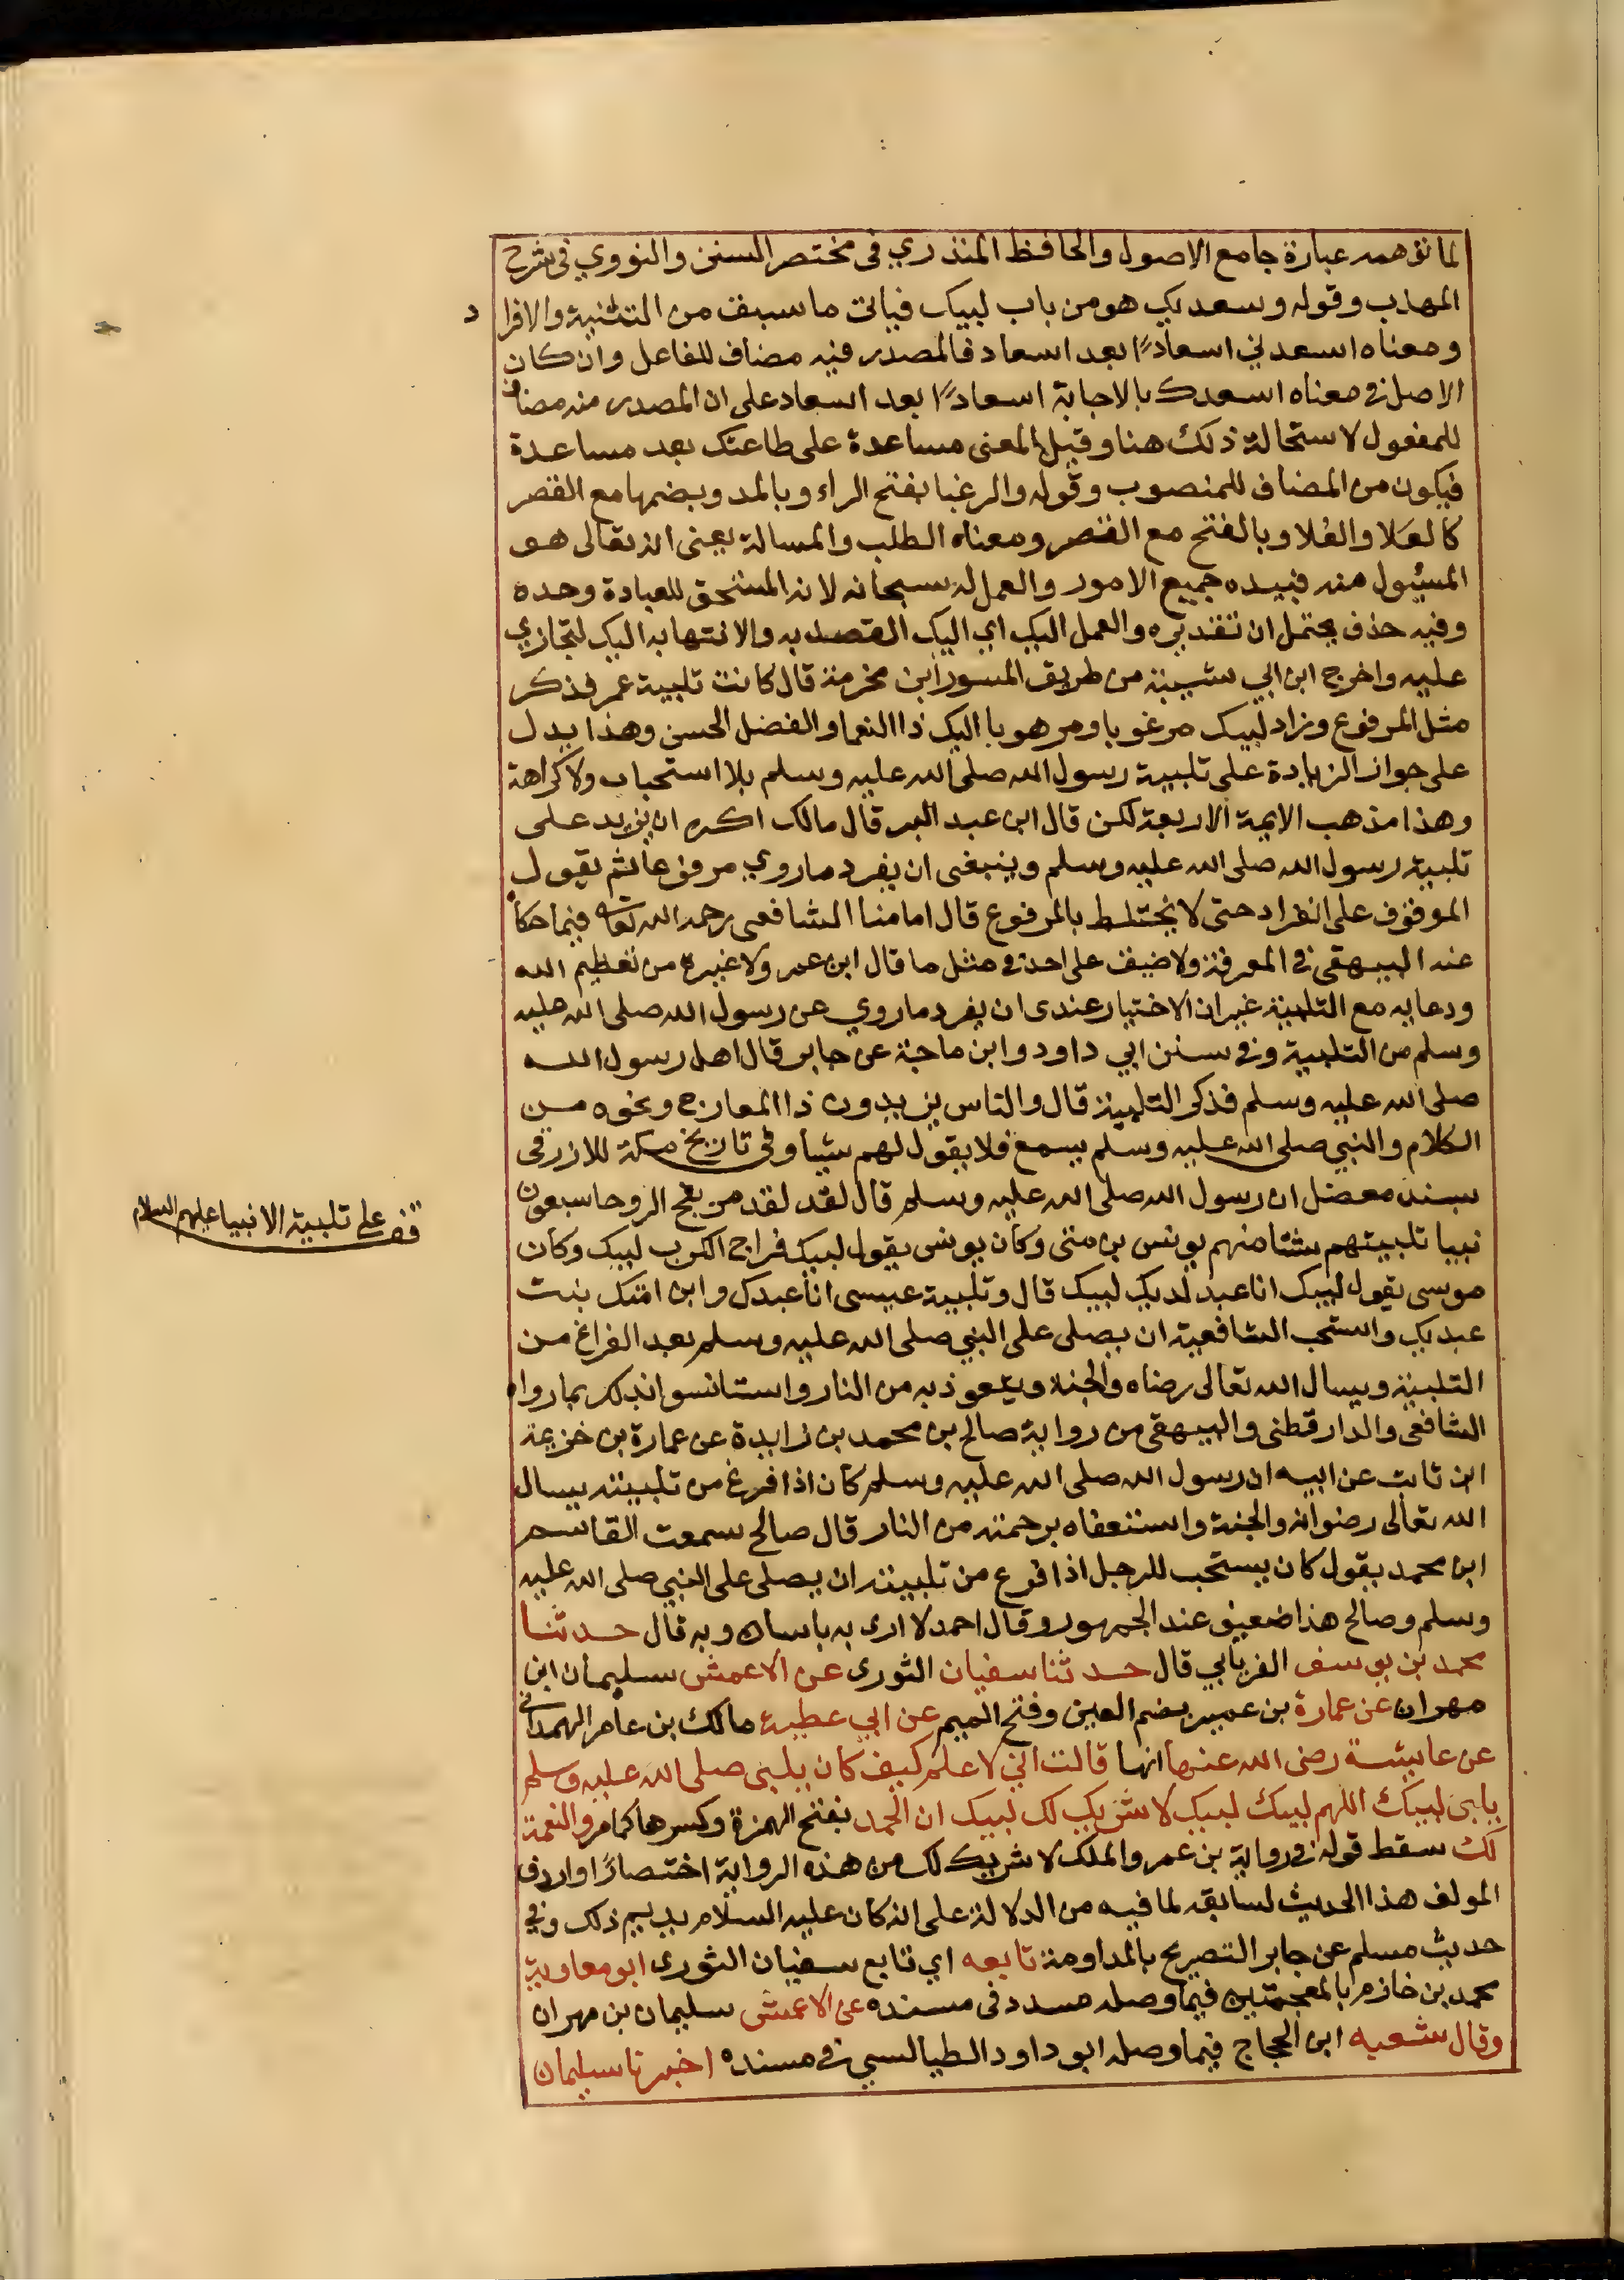 لما توهمه عبارة جامع الاصول والحافظ المنذري في مختصر السنن والنووي في شرح
المهذب وقوله وسعديك هو من باب لبيك فياتي ما سبق من التثنية والافرا د
ومعناه اسعدني اسعادًا بعد اسعاد فالمصدر فيه مضاف للفاعل وان كان
الاصل في معناه اسعدك بالاجابة اسعادًا بعد اسعاد على ان المصدر منه مضاف
للمفعول لاستحالة ذلك هنا وقيل المعنى مساعدة على طاعتك بعد مساعدة
فيكون من المضاف للمنصوب وقوله والرغبا بفتح الراء وبالمد وبضمها مع القصر
كالعَلا والعُلا وبالفتح مع القصر ومعناه الطلب والمسالة يعني انه تعالى هو
المسيول منه فبيده جميع الامور والعمل له سبحانه لانه المستحق للعبادة وحده
وفيه حذف يحتمل ان تقديره والعمل اليك اي اليك القصد به والانتها به اليك لتجازي
عليه واخرج ابن ابي شيبة من طريق المسور ابن مخرمة قال كانت تلبية عمر فذكر
مثل المرفوع وزاد لبيك مرغوبا ومرهوبا اليك ذا النعما والفضل الحسن وهذا يدل
على جواز الزيادة على تلبية رسول الله صلى الله عليه وسلم بلا استحباب ولا كراهة
وهذا مذهب الايمة الاربعة لكن قال ابن عبد البر قال مالك اكره ان يزيد على
تلبية رسول الله صلى الله عليه وسلم وينبغي ان يفرد ما روي مرفوعا ثم يقول
الموقوف على انفراد حتى لا يختلط بالمرفوع قال امامنا الشافعي رحمه الله تعالى فيما حكاه
عنه البيهقي في المعرفة ولا ضيق على احد في مثل ما قال ابن عمر ولا غيره من تعظيم الله
ودعايه مع التلبية غير ان الاختيار عندي ان يفرد ما روي عن رسول الله صلى الله عليه
وسلم من التلبية وفي سنن ابي داود وابن ماجة عن جابر قال اهل رسول الله
صلى الله عليه وسلم فذكر التلبية قال والناس يزيدون ذا المعارج ونحوه من
الكلام والنبي صلى الله عليه وسلم يسمع فلا يقول لهم شيأ وفي تاريخ مكة للازرقي
بسند معضل ان رسول الله صلى الله عليه وسلم قال لقد لقد مر بفج الروحا سبعون
نبيا تلبيتهم شتا منهم يونس بن متى وكان يونس يقول لبيك فراج الكرب لبيك وكان
موسى يقول لبيك انا عبد لديك لبيك قال وتلبية عيسى انا عبدك وابن امتك بنت
عبديك واستحب الشافعية ان يصلى على النبي صلى الله عليه وسلم بعد الفراغ من
التلبية ويسال الله تعالى رضاه والجنة ويتعوذ به من النار واستانسوا لذلك بما رواه
الشافعي والدارقطني والبيهقي من رواية صالح بن محمد بن زايدة عن عمارة بن خزيمة
ابن ثابت عن ابيه ان رسول الله صلى الله عليه وسلم كان اذا فرغ من تلبيته يسال
الله تعالى رضوانه والجنة واستعفاه برحمته من النار قال صالح سمعت القاسم
ابن محمد يقول كان يستحب للرجل اذا فرغ من تلبيته ان يصلى على النبي صلى الله عليه
وسلم وصالح هذا ضعيف عند الجمهور وقال احمد لا ارى به باسا وبه قال حدثنا
محمد بن يوسف الفريابي قال حدثنا سفيان الثوري عن الاعمش سليمان ابن
مهران عن عمارة بن عمير بضم العين وفتح الميم عن ابي عطية مالك بن عامر الهمداني
عن عايشة رضي الله عنها انها قالت اني لاعلم كيف كان يلبي صلى الله عليه وسلم
يلبي لبيك اللهم لبيك لبيك لا شريك لك لبيك ان الحمد بفتح الهمزة وكسرها كما مر والنعمة
لك سقط قوله في رواية بن عمر والملك لا شريك لك من هذه الرواية اختصارًا واردف
المولف هذا الحديث لسابقه لما فيه من الدلالة على انه كان عليه السلام يديم ذلك وفي
حديث مسلم عن جابر التصريح بالمداومة تابعه اي تابع سفيان الثوري ابو معاوية
محمد بن خازم بالمعجمتين فيما وصله مسدد في مسنده عن الاعمش سليمان بن مهران
وقال شعبه ابن الحجاج فيما وصله ابو داود الطيالسي في مسنده اخبرنا سليمان
قف على تلبية الانبيا عليهم السلام